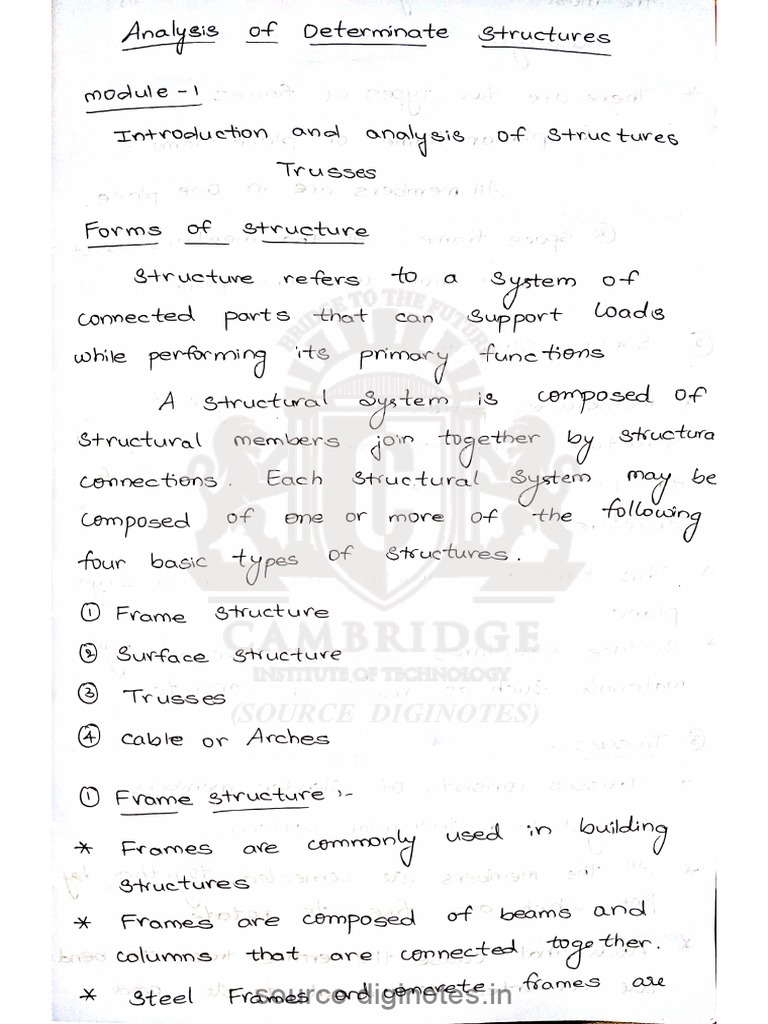 Analysis of Determinate Structures
module - 1
Introduction and analysis of structures
Trusses
Forms of structure
Structure refers to a system of
connected parts that can support loads
while performing its primary functions
A structural system is composed of
structural members join together by structura
connections. Each structural system may be
composed of one or more of the following
four basic types of structures.
① Frame structure
② Surface structure
③ Trusses
④ Cable or Arches
① Frame structure :-
* Frames are commonly used in building
structures
* Frames are composed of beams and
columns that are connected together.
* Steel Frames and concrete frames are
BRIDGE TO THE FUTURE
CAMBRIDGE
INSTITUTE OF TECHNOLOGY
(SOURCE DIGINOTES)
source diginotes.in